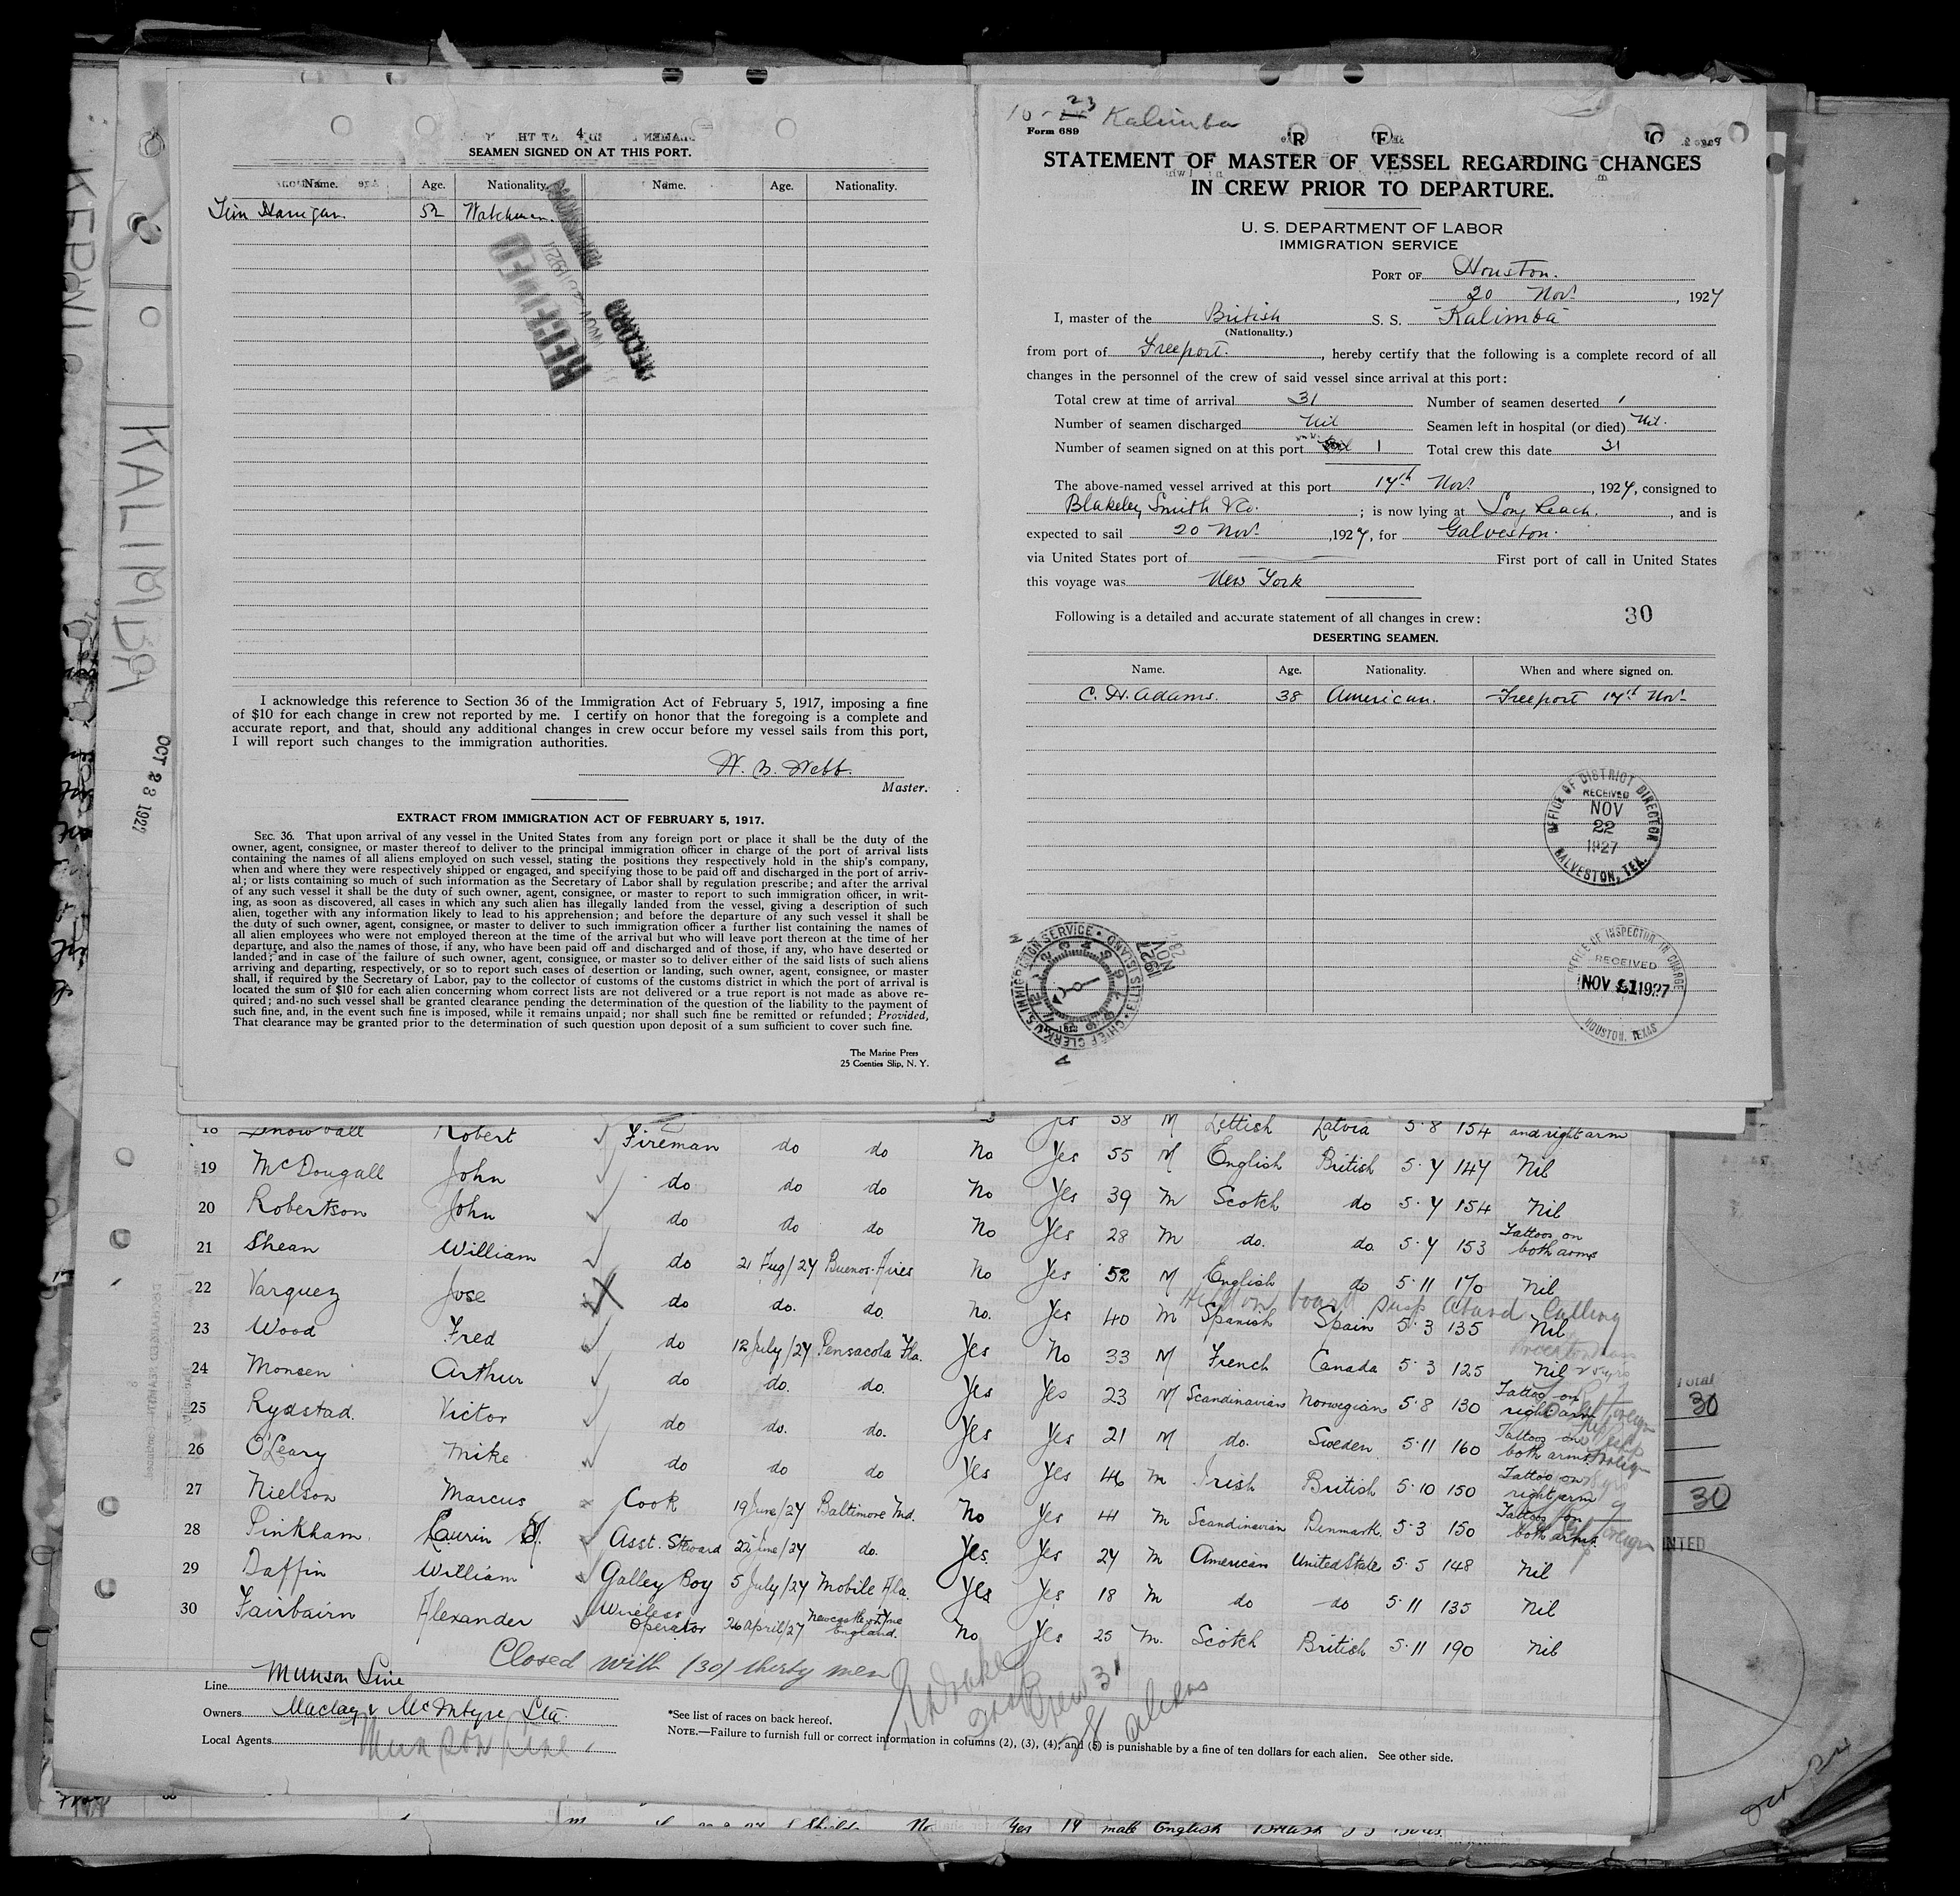 SEAMEN SIGNED ON AT THIS PORT.
Name. Age. Nationality. Name. Age. Nationality.
52 Watchman.
RECEIVED
RECORD
I acknowledge this reference to Section 36 of the Immigration Act of February 5, 1917, imposing a fine
of $10 for each change in crew not reported by me. I certify on honor that the foregoing is a complete and
accurate report, and that, should any additional changes in crew occur before my vessel sails from this port,
I will report such changes to the immigration authorities.
Webb.
Master.
EXTRACT FROM IMMIGRATION ACT OF FEBRUARY 5, 1917.
SEC. 36. That upon arrival of any vessel in the United States from any foreign port or place it shall be the duty of the
owner, agent, consignee, or master thereof to deliver to the principal immigration officer in charge of the port of arrival lists
containing the names of all aliens employed on such vessel, stating the positions they respectively hold in the ship's company,
when and where they were respectively shipped or engaged, and specifying those to be paid off and discharged in the port of arriv-
al; or lists containing so much of such information as the Secretary of Labor shall by regulation prescribe; and after the arrival
of any such vessel it shall be the duty of such owner, agent, consignee, or master to report to such immigration officer, in writ-
ing, as soon as discovered, all cases in which any such alien has illegally landed from the vessel, giving a description of such
alien, together with any information likely to lead to his apprehension; and before the departure of any such vessel it shall be
the duty of such owner, agent, consignee, or master to deliver to such immigration officer a further list containing the names of
all alien employees who were not employed thereon at the time of the arrival but who will leave port thereon at the time of her
departure, and also the names of those, if any, who have been paid off and discharged and of those, if any, who have deserted or
landed; and in case of the failure of such owner, agent, consignee, or master so to deliver either of the said lists of such aliens
arriving and departing, respectively, or so to report such cases of desertion or landing, such owner, agent, consignee, or master
shall, if required by the Secretary of Labor, pay to the collector of customs of the customs district in which the port of arrival is
located the sum of $10 for each alien concerning whom correct lists are not delivered or a true report is not made as above re-
quired; and no such vessel shall be granted clearance pending the determination of the question of the liability to the payment of
such fine, and, in the event such fine is imposed, while it remains unpaid; nor shall such fine be remitted or refunded; Provided,
That clearance may be granted prior to the determination of such question upon deposit of a sum sufficient to cover such fine.
The Marine Press
25 Coenties Slip, N. Y.
KALIMBA
OCT 23 1927
Kalimba
Form 689
STATEMENT OF MASTER OF VESSEL REGARDING CHANGES
IN CREW PRIOR TO DEPARTURE.
U. S. DEPARTMENT OF LABOR
IMMIGRATION SERVICE
PORT OF Houston.
20 Nov., 1927
I, master of the British S. S. "Kalimba"
(Nationality.)
from port of Freeport., hereby certify that the following is a complete record of all
changes in the personnel of the crew of said vessel since arrival at this port:
Total crew at time of arrival 31 Number of seamen deserted 1
Number of seamen discharged Nil Seamen left in hospital (or died) Nil.
Number of seamen signed on at this port 1 Total crew this date 31
The above-named vessel arrived at this port 17th Nov., 1927, consigned to
Blakeley, Smith & Co. ; is now lying at Long Reach., and is
expected to sail 20 Nov., 1927, for Galveston.
via United States port of First port of call in United States
this voyage was New York
Following is a detailed and accurate statement of all changes in crew: 30
DESERTING SEAMEN.
Name. Age. Nationality. When and where signed on.
C. H. Adams. 38 American. Freeport 17th Nov.
OFFICE OF DISTRICT DIRECTOR
RECEIVED
NOV
22
1927
GALVESTON, TEX.
OFFICE OF INSPECTOR IN CHARGE
RECEIVED
NOV 21 1927
HOUSTON, TEXAS
U.S. IMMIGRATION SERVICE • ELLIS ISLAND • CHIEF CLERK
NOV 1927
18 Robert Fireman do do Yes 38 M Lettish Latvia 5·8 154 and right arm
19 McDougall John do do do No Yes 55 M English British 5·7 147 Nil
20 Robertson John do do do No Yes 39 M Scotch do 5·7 154 Nil
21 Shean William do 21 Aug/27 Buenos-Aires No Yes 28 M do. do. 5·7 153 Tattoos on both arms
22 Varquez Jose do do. do. No Yes 52 M English do 5·11 170 Nil
23 Wood Fred do 12 July/27 Pensacola Fla. No. Yes 40 M Spanish Spain 5·3 135 Nil
24 Monsen Arthur do do. do. Yes No 33 M French Canada 5·3 125 Nil
25 Rydstad. Victor do do. do. Yes Yes 23 M Scandinavian Norwegian 5·8 130 Tattoo on right arm
26 O'Leary Mike do do do Yes Yes 21 M do. Sweden 5·11 160 both arms
27 Nielson Marcus Cook 19 June/27 Baltimore Md. Yes Yes 46 M Irish British 5·10 150 Tattoo on right arm
28 Pinkham. Asst. Steward 22 June/27 do. No Yes 41 M Scandinavian Denmark. 5·3 150 Tattoos on both arms.
29 Daffin William Galley Boy 5 July/27 Mobile Ala. Yes. Yes 27 M American United State 5·5 148 Nil
30 Fairbairn Alexander Wireless Operator 26 April/27 Newcastle on Tyne England. Yes Yes 18 M do do 5·11 135 Nil
No Yes 25 M. Scotch British 5·11 190 Nil
Closed with (30) thirty men
Crew 31
28 aliens
Line Munson Line
Owners Maclay & McIntyre Ltd.
Local Agents Munson Line
*See list of races on back hereof.
NOTE.—Failure to furnish full or correct information in columns (2), (3), (4), and (5) is punishable by a fine of ten dollars for each alien. See other side.
Total
30
30
No Yes 19 male English British